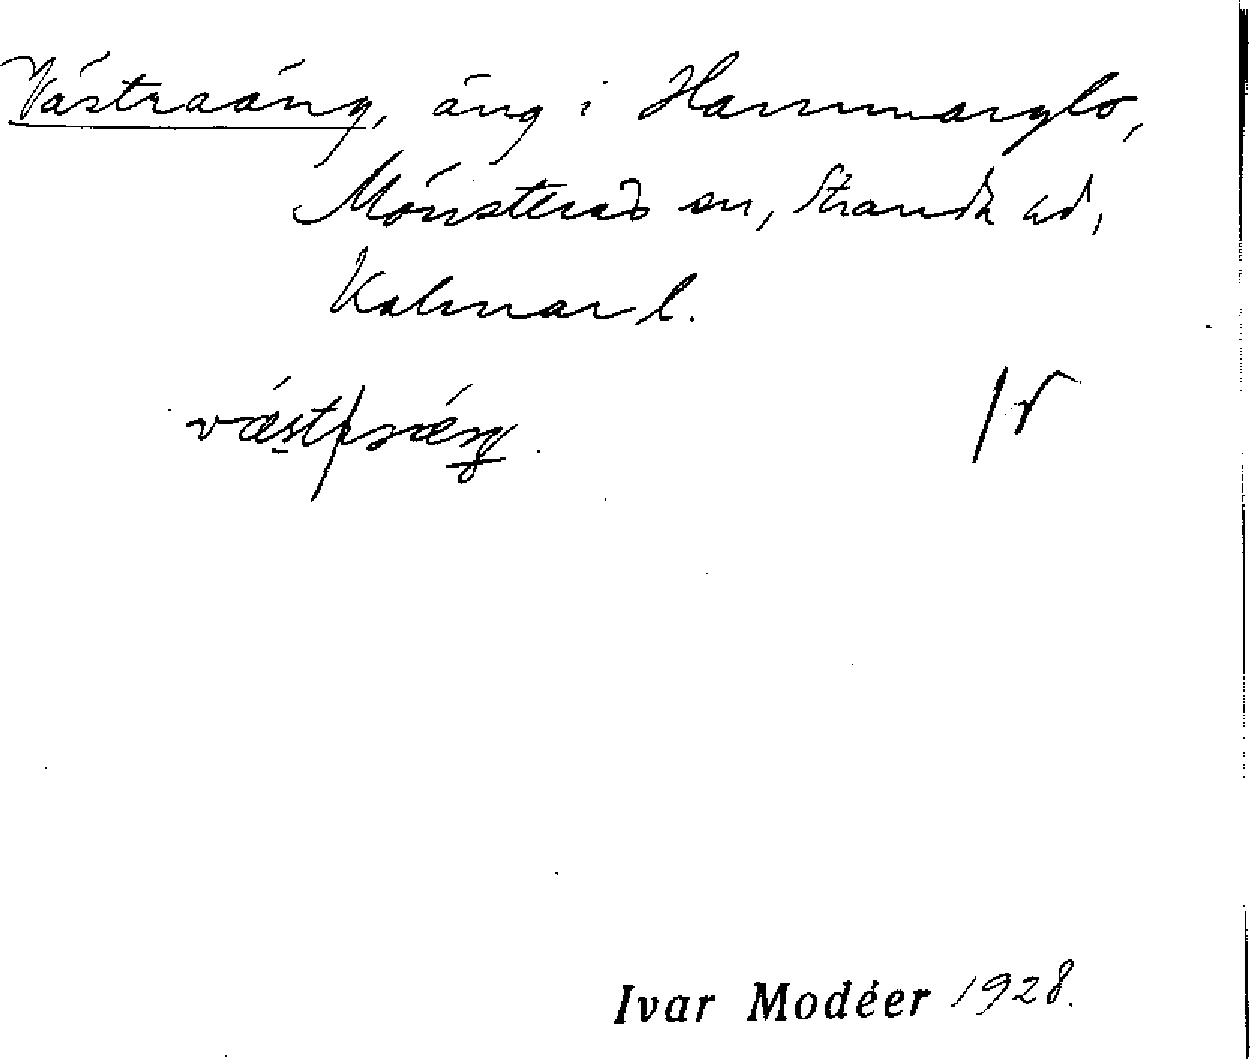 Västraäng, äng i Hammarglo,
Mönsterås sn, Stranda hd,
Kalmar l.
Ivar Modéer 1928.